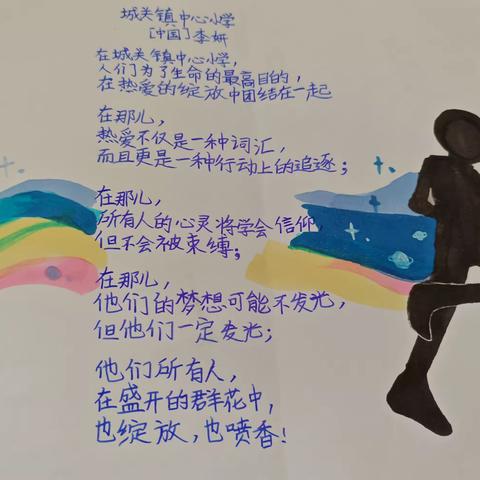 城关镇中心小学
[中国]李妍
在城关镇中心小学,
人们为了生命的最高目的,
在热爱的绽放中团结在一起
在那儿,
热爱不仅是一种词汇,
而且更是一种行动上的追逐;
在那儿,
所有人的心灵将学会信仰,
但不会被束缚;
在那儿,
他们的梦想可能不发光,
但他们一定发光;
他们所有人,
在盛开的群花中,
也绽放,也喷香!